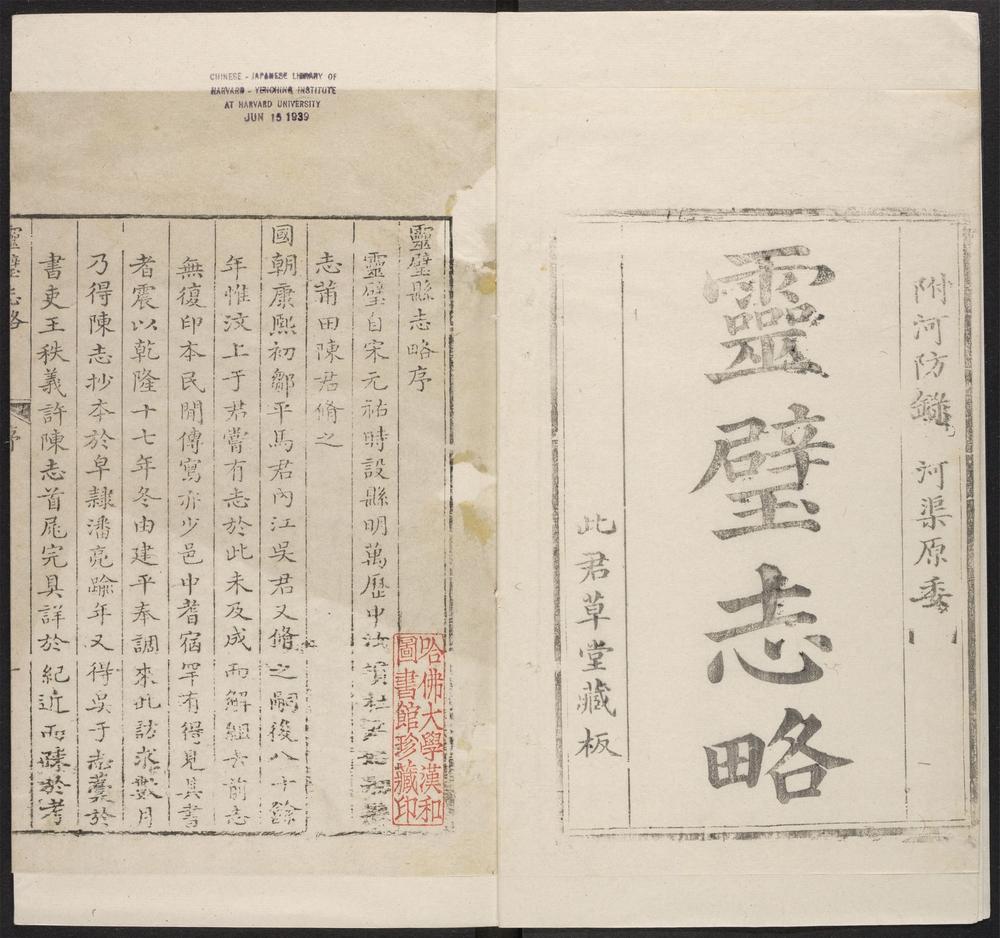 附河防錄 河渠原委
靈璧志略
此君草堂藏板
CHINESE - JAPANESE LIBRARY OF
HARVARD - YENCHING INSTITUTE
AT HARVARD UNIVERSITY
JUN 15 1939
靈璧縣志略序
靈璧自宋元祐時設縣明萬歷中
志莆田陳君脩之
國朝康熙初鄒平馬君內江吳君又脩之嗣後八十餘
年惟汶上于君嘗有志於此未及成而解組去前志
無復印本民間傳寫亦少邑中耆宿罕有得見其書
者震以乾隆十七年冬由建平奉調來此訪求數月
乃得陳志抄本於皁隸潘亮踰年又得吳于志藁於
書吏王秩義許陳志首尾完具詳於紀近而疎於考
靈璧志略
序
一
哈佛大學漢和
圖書館珍藏印